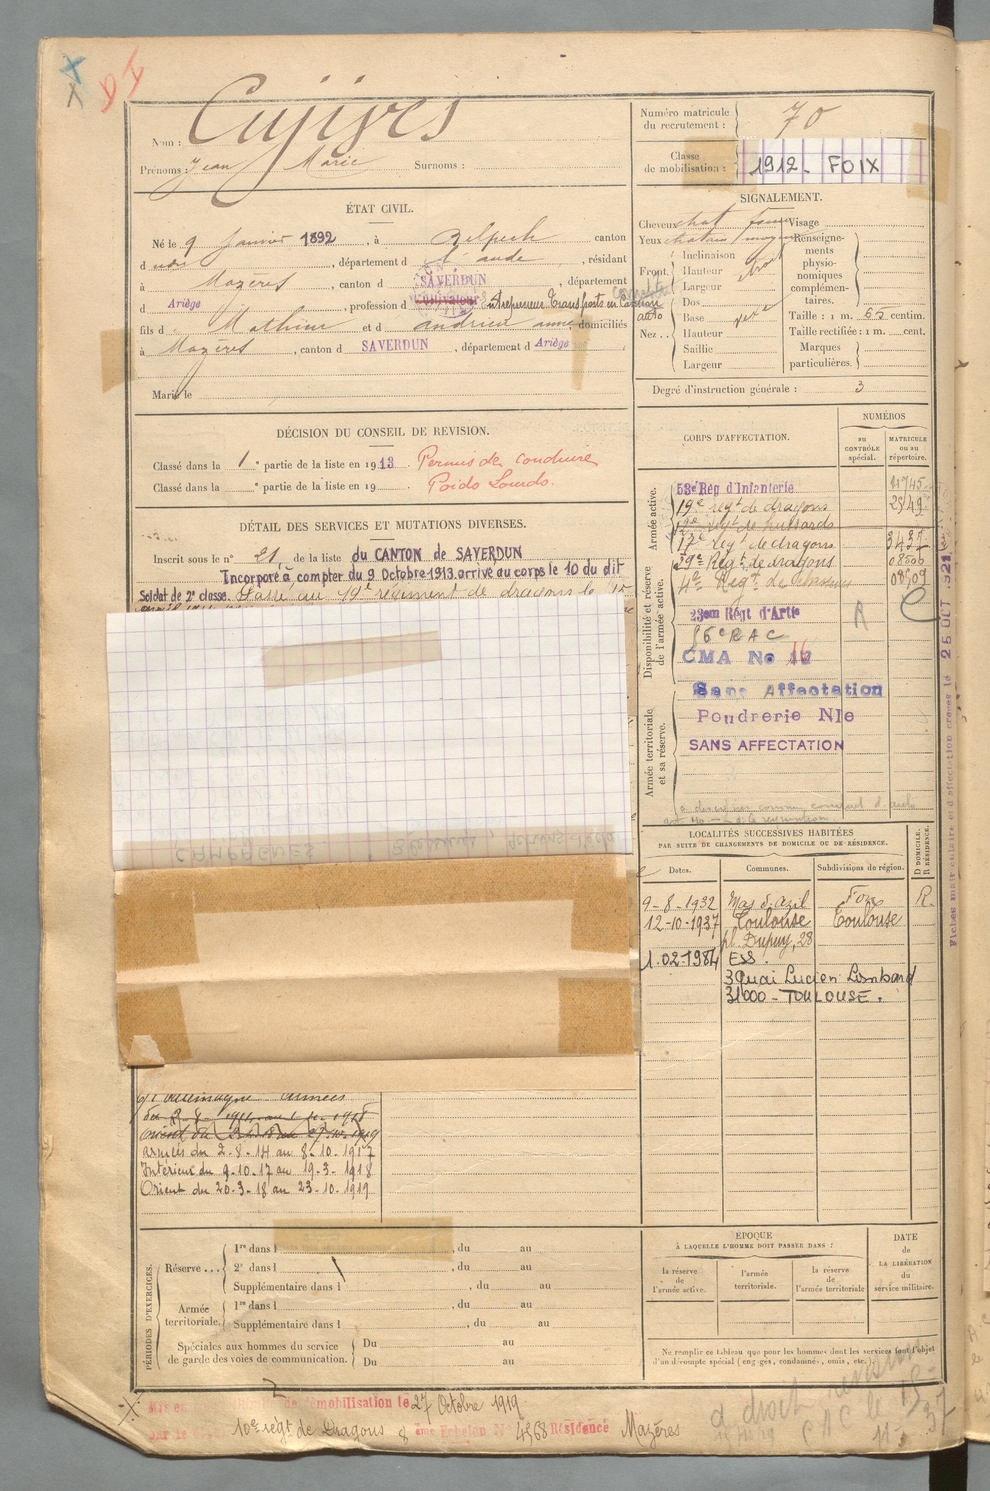 Nom : Cujives
Prénoms : Jean Marie Surnoms :
Numéro matricule du recrutement : 70
Classe de mobilisation : 1912 - FOIX
ÉTAT CIVIL.
Né le 9 Janvier 1892, à Belpech canton
d udit, département d l'aude, résidant
à Mazères, canton d SAVERDUN, département
d Ariège, profession d cultivateur Entrepreneur Transport en Camion auto
fils d Mathieu et d andrieu anne domiciliés
à Mazères, canton d SAVERDUN, département d Ariège
Marié le
SIGNALEMENT.
Cheveux chat foncé Visage
Yeux chatain moyen Renseignements physionomiques complémentaires.
Front Inclinaison
Hauteur
Largeur
Nez Dos
Base
Hauteur
Saillie
Largeur
Taille : 1 m. 62 centim.
Taille rectifiée : 1 m. cent.
Marques particulières.
Degré d'instruction générale : 3
DÉCISION DU CONSEIL DE REVISION.
Classé dans la 1re partie de la liste en 1913 Permis de conduire
Classé dans la e partie de la liste en 19 Poids Lourds.
DÉTAIL DES SERVICES ET MUTATIONS DIVERSES.
Inscrit sous le n° 21, de la liste du CANTON de SAVERDUN
Incorporé à compter du 9 Octobre 1913. arrivé au corps le 10 du dit
Soldat de 2e classe. Passé au 19e régiment de dragons le 1er
CAMPAGNES
CORPS D'AFFECTATION.
NUMÉROS
au CONTRÔLE spécial.
MATRICULE ou au répertoire.
Armée active.
53e Rég d'Infanterie 11745
19e regt de dragons 2549
12e regt de hussards
17e regt de dragons 3437
29e Regt de dragons 08500
4e Regt de 08509
Disponibilité et réserve de l'armée active.
23em Régt d'Artie
56e RAC
CMA No 16
Sans Affectation
Poudrerie Nle
SANS AFFECTATION
Armée territoriale et sa réserve.
R
C
Fiches matriculaire et d'affectation créées le 25 OCT. 1921
LOCALITÉS SUCCESSIVES HABITÉES
PAR SUITE DE CHANGEMENTS DE DOMICILE OU DE RÉSIDENCE.
Dates. Communes. Subdivisions de région. D DOMICILE. R RÉSIDENCE.
9-8-1932 Mas d'Azil Foix R.
12-10-1937 Toulouse Toulouse
pl. Dupuy, 28
1.02-1984 ESS.
3 Quai Lucien Lombard
31000 - TOULOUSE.
ct Allemagne armées
armées du 2-8-14 au 8-10-1917
Intérieur du 9-10-17 au 19-3-1918
Orient du 20-3-18 au 23-10-1919
PÉRIODES D'EXERCICES.
Réserve ... 1re dans l , du au
2e dans l , du au
Supplémentaire dans l , du au
Armée territoriale. 1re dans l , du au
Supplémentaire dans l , du au
Spéciales aux hommes du service de garde des voies de communication. Du au
Du au
ÉPOQUE
À LAQUELLE L'HOMME DOIT PASSER DANS :
la réserve de l'armée active.
l'armée territoriale.
la réserve de l'armée territoriale
DATE de LA LIBÉRATION du service militaire.
Ne remplir ce tableau que pour les hommes dont les services font l'objet
d'un décompte spécial (engagés, condamnés, omis, etc.)
Mis en de démobilisation le 27 Octobre 1919
par le 10e régt de Dragons 2ème Echelon N° 4568 Résidence Mazères